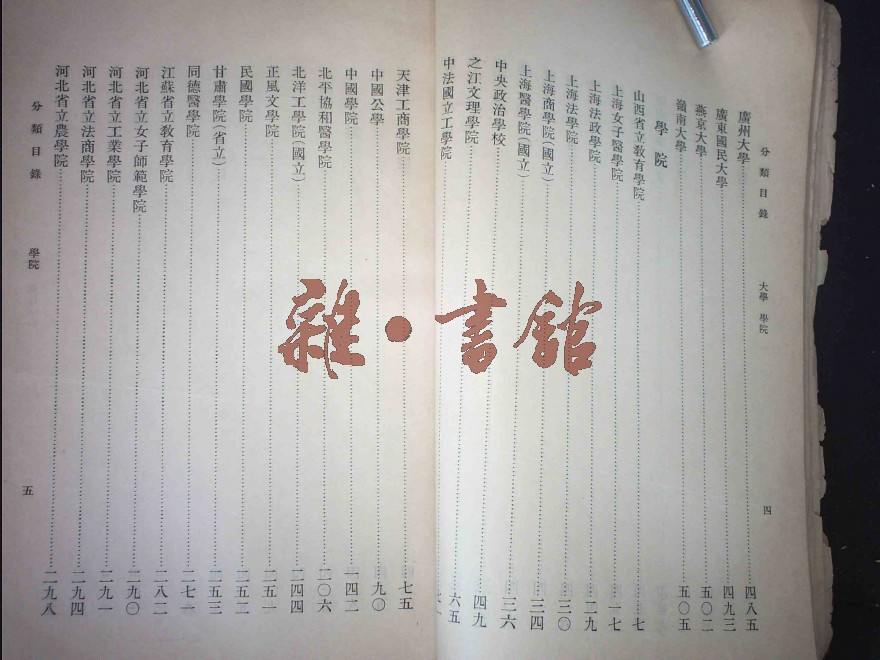 分類目錄　大學　學院　四
廣州大學……四八五
廣東國民大學……四九三
燕京大學……五〇二
嶺南大學……五〇五
學院
山西省立教育學院……七
上海女子醫學院……一七
上海法政學院……二九
上海法學院……三〇
上海商學院(國立)……三四
上海醫學院(國立)……三六
中央政治學校……四九
之江文理學院……六五
中法國立工學院……
天津工商學院……七五
中國公學……九〇
中國學院……一四二
北平協和醫學院……二〇六
北洋工學院(國立)……二四四
正風文學院……二五一
民國學院……二五二
甘肅學院(省立)……二五三
同德醫學院……二七一
江蘇省立教育學院……二八二
河北省立女子師範學院……二九〇
河北省立工業學院……二九一
河北省立法商學院……二九四
河北省立農學院……二九八
分類目錄　學院　五
雜·書館